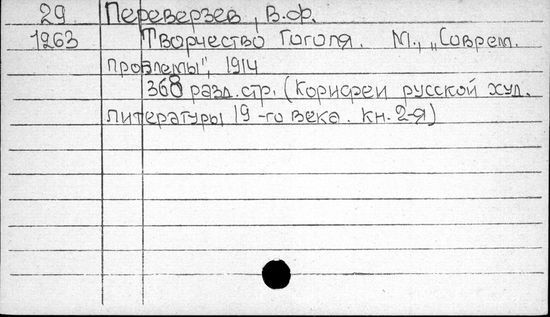 29 Переверзев, В.Ф.
1263 Творчество Гоголя. М., „Соврем.
проблемы", 1914
368 разд. стр. (Корифеи русской худ.
литературы 19-го века. кн. 2-я)